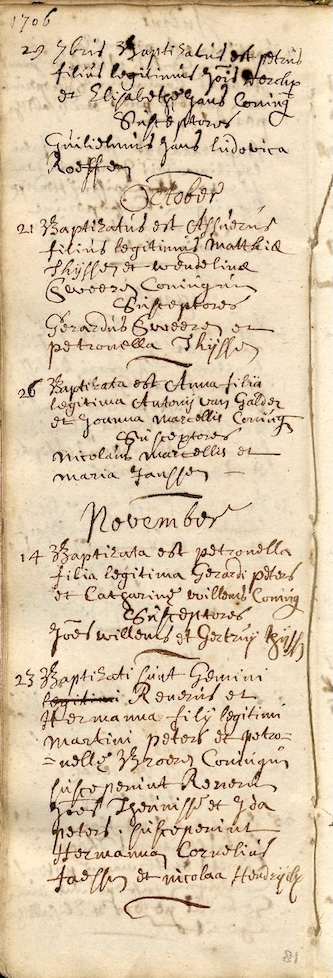 1706
29 7bris Baptizatus est petrus
filius legitimus Joīs
et Elisabethae Jans Coniug
Susceptores
Guilielmus Jans ludovica
Roeffen
October
21 Baptizatus est Assuerus
filius legitimus Matthiæ
Thijssen et wendelinæ
Sweeren Coniugum
Susceptores
Gerardus Sweeren et
petronella Thijssen
26 Baptizata est Anna filia
legitima Antonij van Gelder
et Joanna Marcellis Coniug
Susceptores
Nicolaus Marcellis et
maria Janssen
November
14 Baptizata est petronella
filia legitima Gerardi peters
et Catharinæ willems Coniug
Susceptores
Joēs willems et Gertruij Thijss
23 Baptizati sunt Gemini
legitimi Renerus et
Hermanna filij legitimi
Martini peters et petro-
=nellæ Broers Coniugum
susceperunt Renerum
Joēs Theunisse et Ida
peters. susceperunt
Hermannam Cornelius
et nicolaa
81